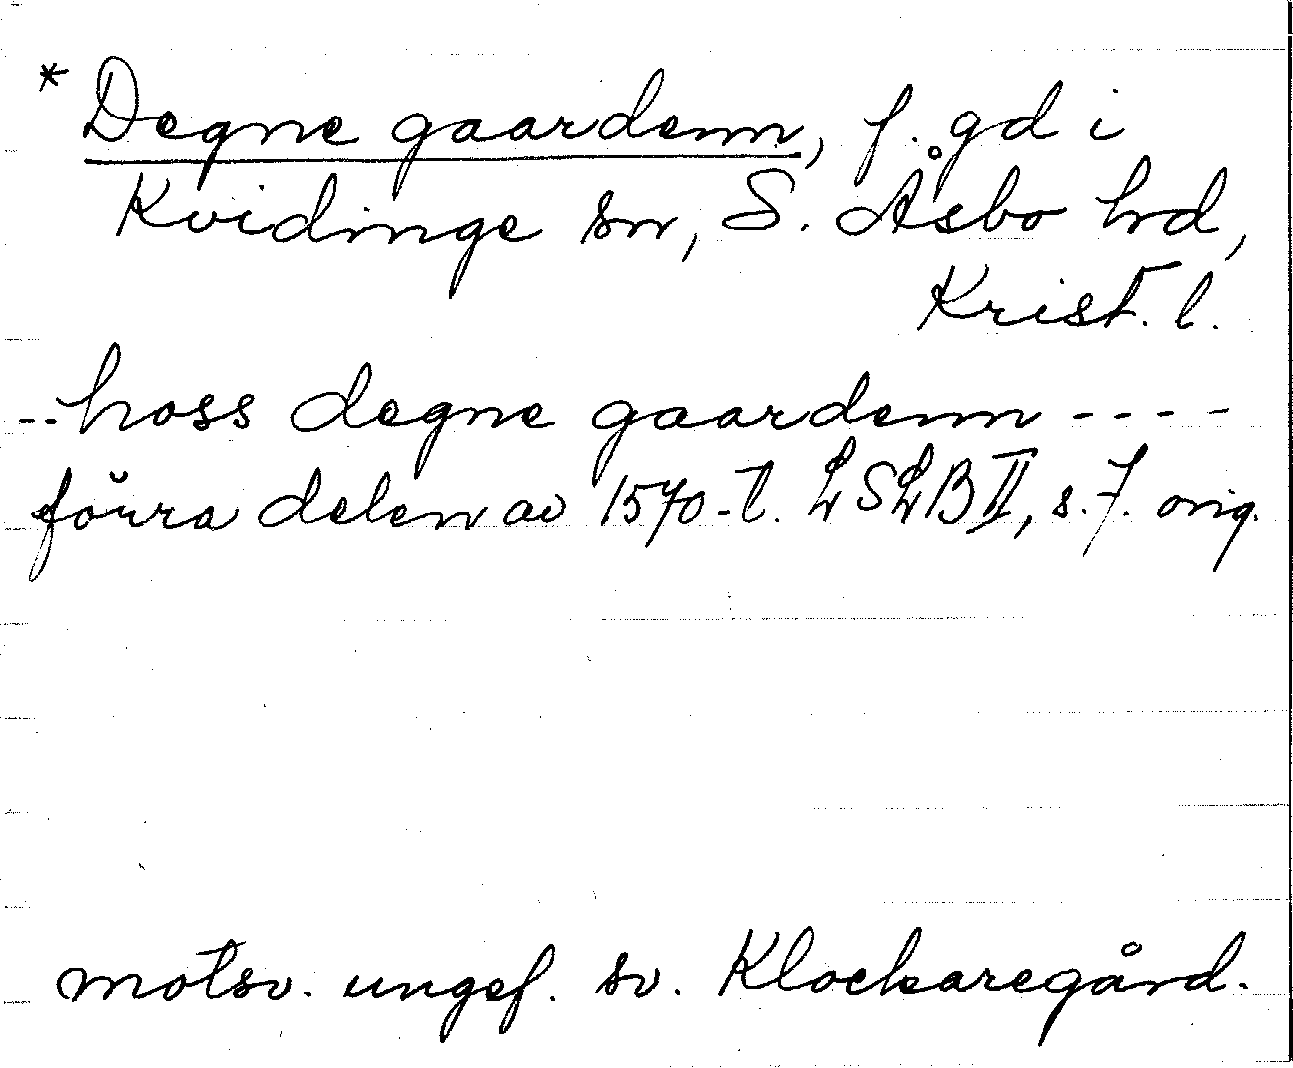 * Degne gaardenn, f. gd i
Kvidinge sn, S. Åsbo hd,
Krist. l.
-- hoss degne gaardenn ----
förra delen av 1570-t. LSLB II, s. 7. orig.
motsv. ungef. sv. Klockaregård.